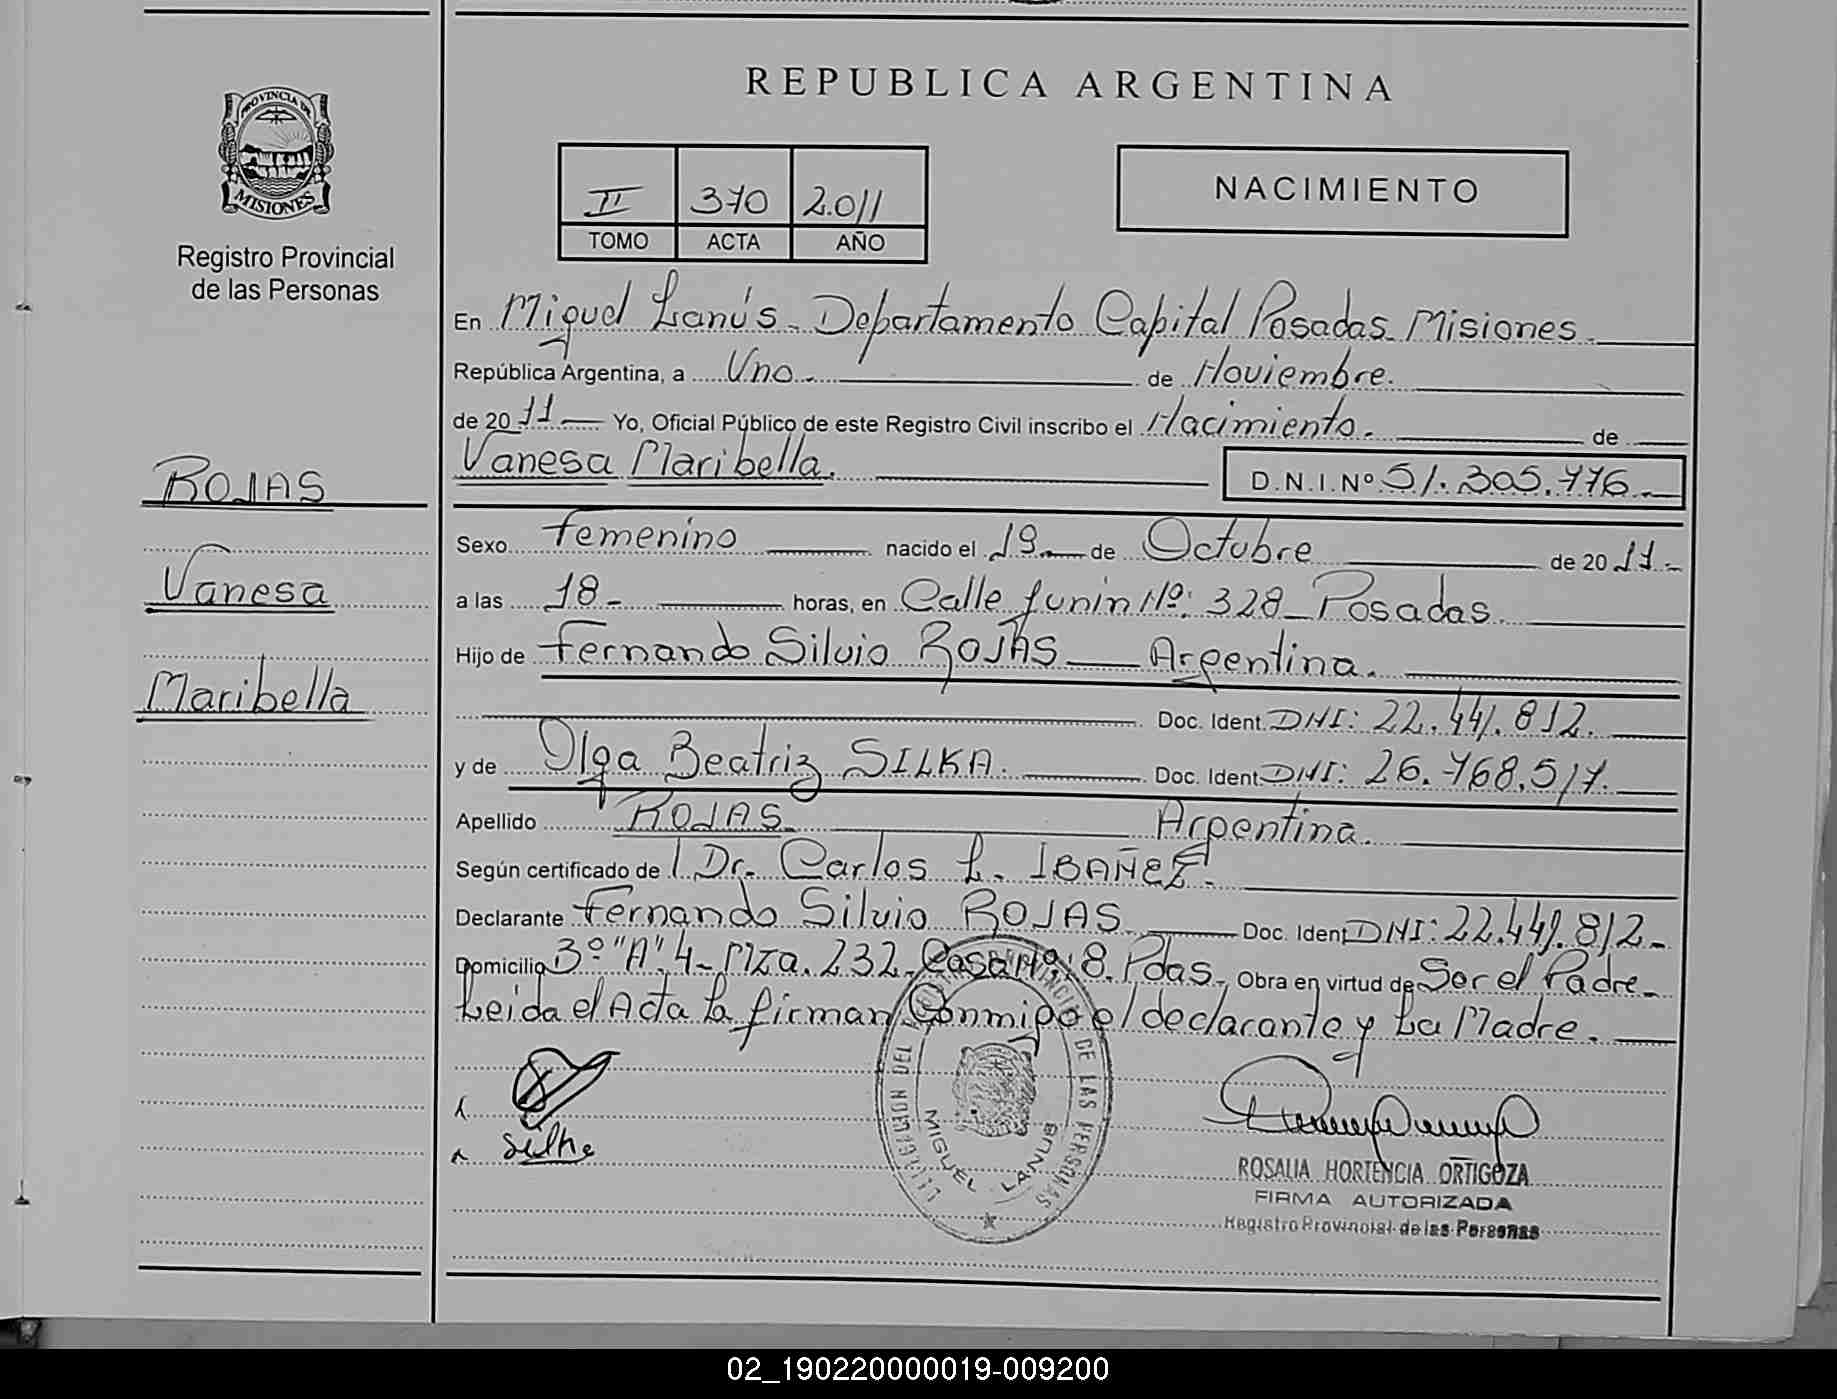 PROVINCIA DE
MISIONES
Registro Provincial
de las Personas
ROJAS
Vanesa
Maribella
REPUBLICA ARGENTINA
II 370 2.011
TOMO ACTA AÑO
NACIMIENTO
En Miguel Lanús - Departamento Capital Posadas - Misiones -
República Argentina, a Uno - de Noviembre.
de 2011 - Yo, Oficial Público de este Registro Civil inscribo el Nacimiento. de
Vanesa Maribella. D.N.I.Nº 51.305.776 -
Sexo Femenino nacido el 19 - de Octubre de 2011 -
a las 18 - horas, en Calle Junin Nº: 328 - Posadas.
Hijo de Fernando Silvio ROJAS - Argentina.
Doc. Ident. DNI: 22.441.812.
y de Olga Beatriz SILKA. Doc. Ident. DNI: 26.768.517.
Apellido ROJAS Argentina.
Según certificado de l Dr. Carlos L. IBAÑEZ -
Declarante Fernando Silvio ROJAS Doc. Ident DNI: 22.441.812 -
Domicilio Bº "A" 4 - Mza. 232 - Casa Nº: 8. Pdas - Obra en virtud de Ser el Padre -
Leida el Acta La firman Conmigo el declarante y La Madre.
DELEGACION DEL REGISTRO PROVINCIAL DE LAS PERSONAS
MIGUEL LANUS
Silka
ROSALIA HORTENCIA ORTIGOZA
FIRMA AUTORIZADA
Registro Provincial de las Personas
02_190220000019-009200